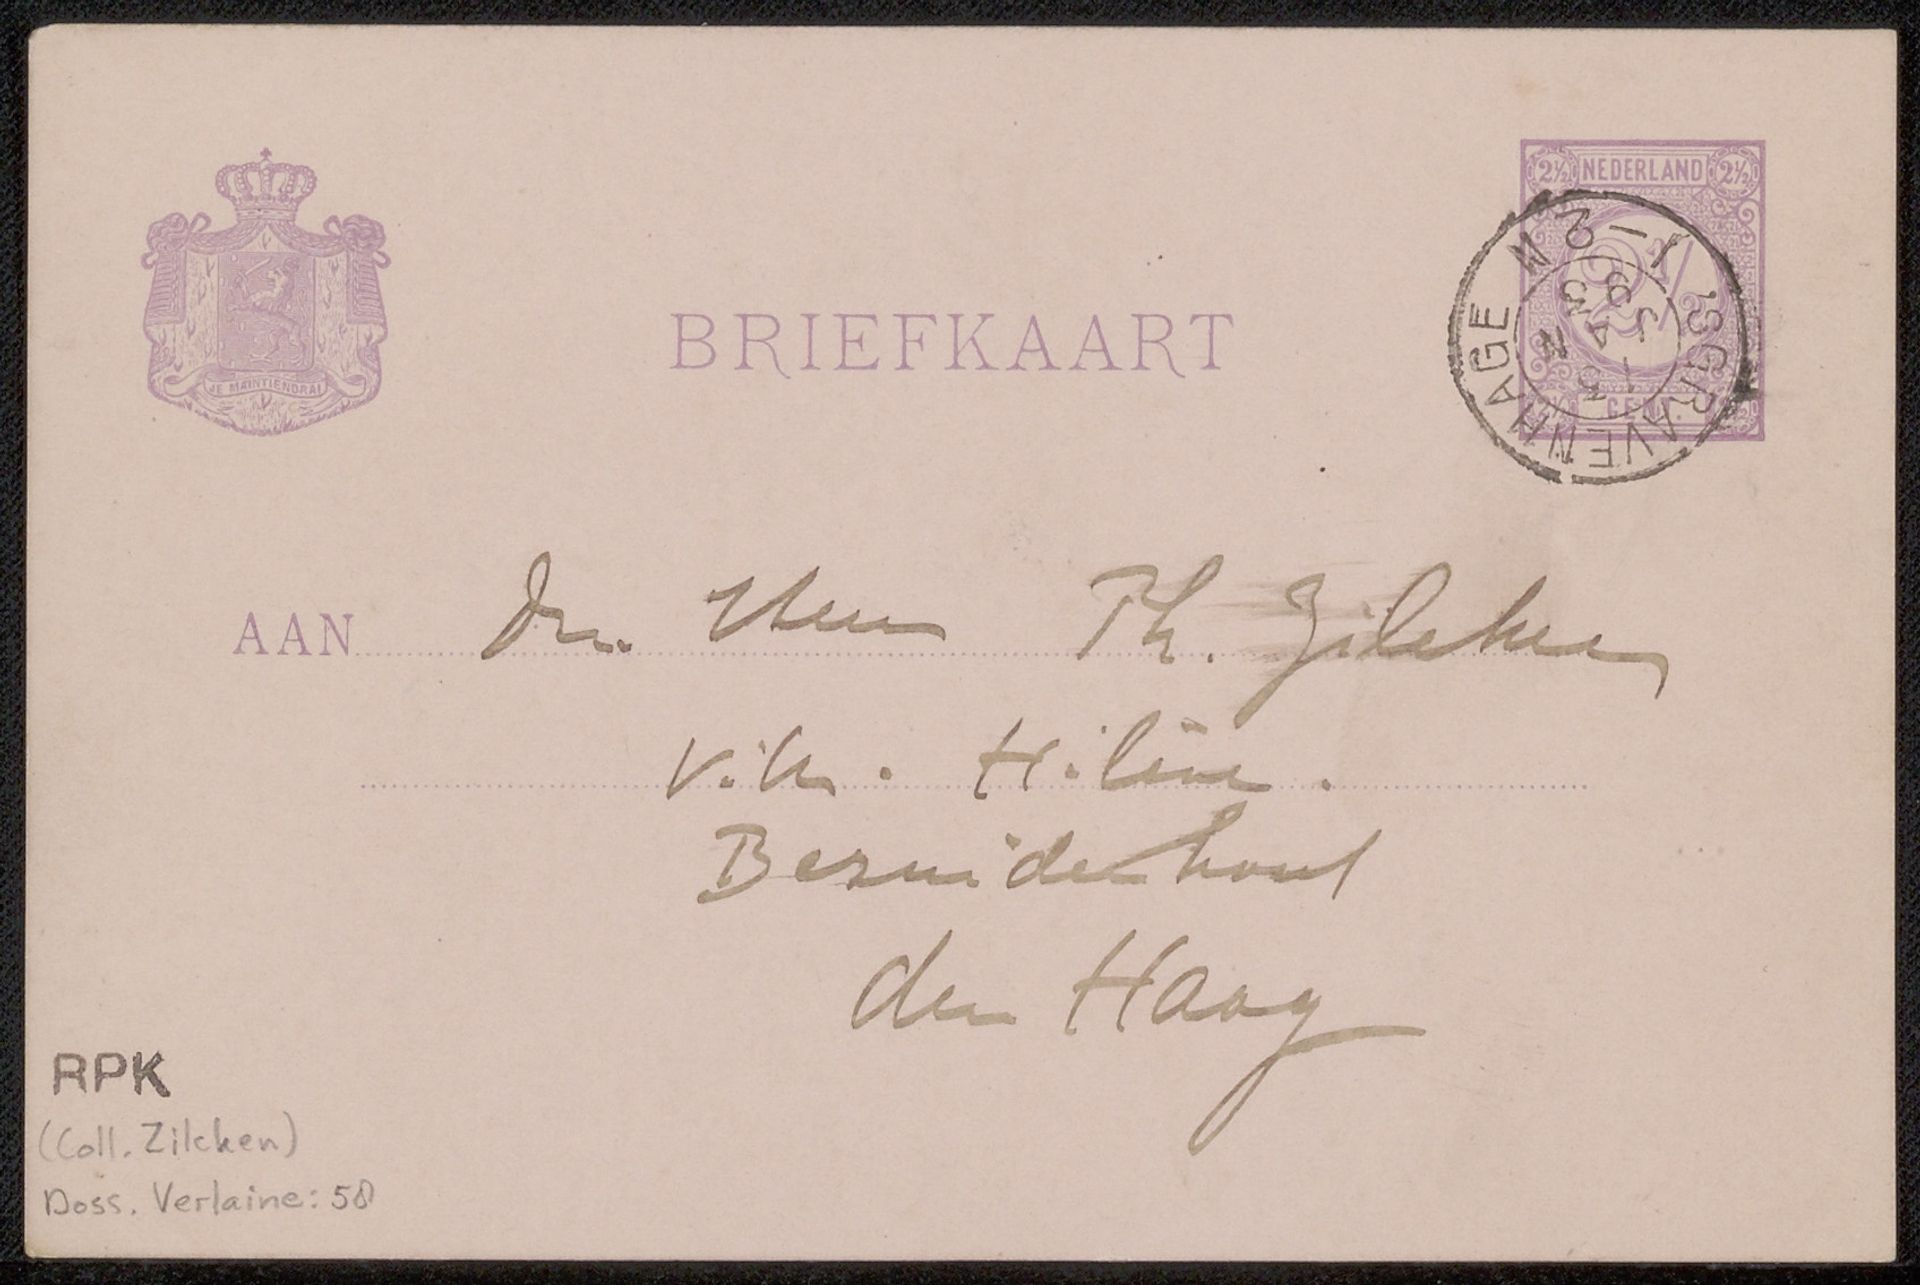 2½ NEDERLAND 2½
2½
CENT
'SGRAVENHAGE
1-2 N
JE MAINTIENDRAI
BRIEFKAART
AAN Den Heer Th. Zilcken
Villa. Hélène.
Bezuidenhout
den Haag
RPK
(Coll. Zilcken)
Doss. Verlaine: 58